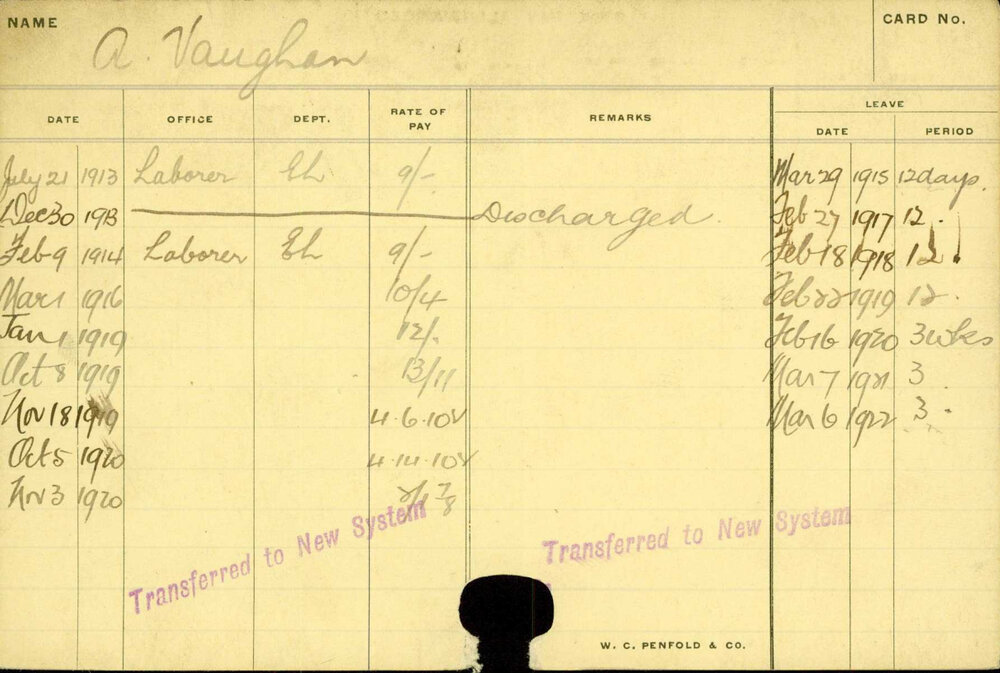 NAME
CARD No.
A. Vaughan
LEAVE
DATE OFFICE DEPT. RATE OF PAY REMARKS DATE PERIOD
July 21 1913 Laborer EL 9/- Mar 29 1915 12 days.
Dec 30 1913 Discharged. Feb 27 1917 12 .
Feb 9 1914 Laborer EL 9/- Feb 18 1918 12 .
Mar 1 1916 10/4 Feb 22 1919 12 .
Jan 1 1919 12/. Feb 16 1920 3 wks
Oct 8 1919 13/11 Mar 7 1921 3
Nov 18 1919 4.6.10½ Mar 6 1922 3 .
Oct 5 1920 4.14.10½
Nov 3 1920
Transferred to New System
Transferred to New System
W. C. PENFOLD & CO.